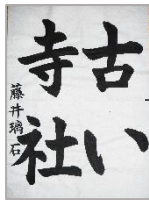 古い
寺社
藤井璃石